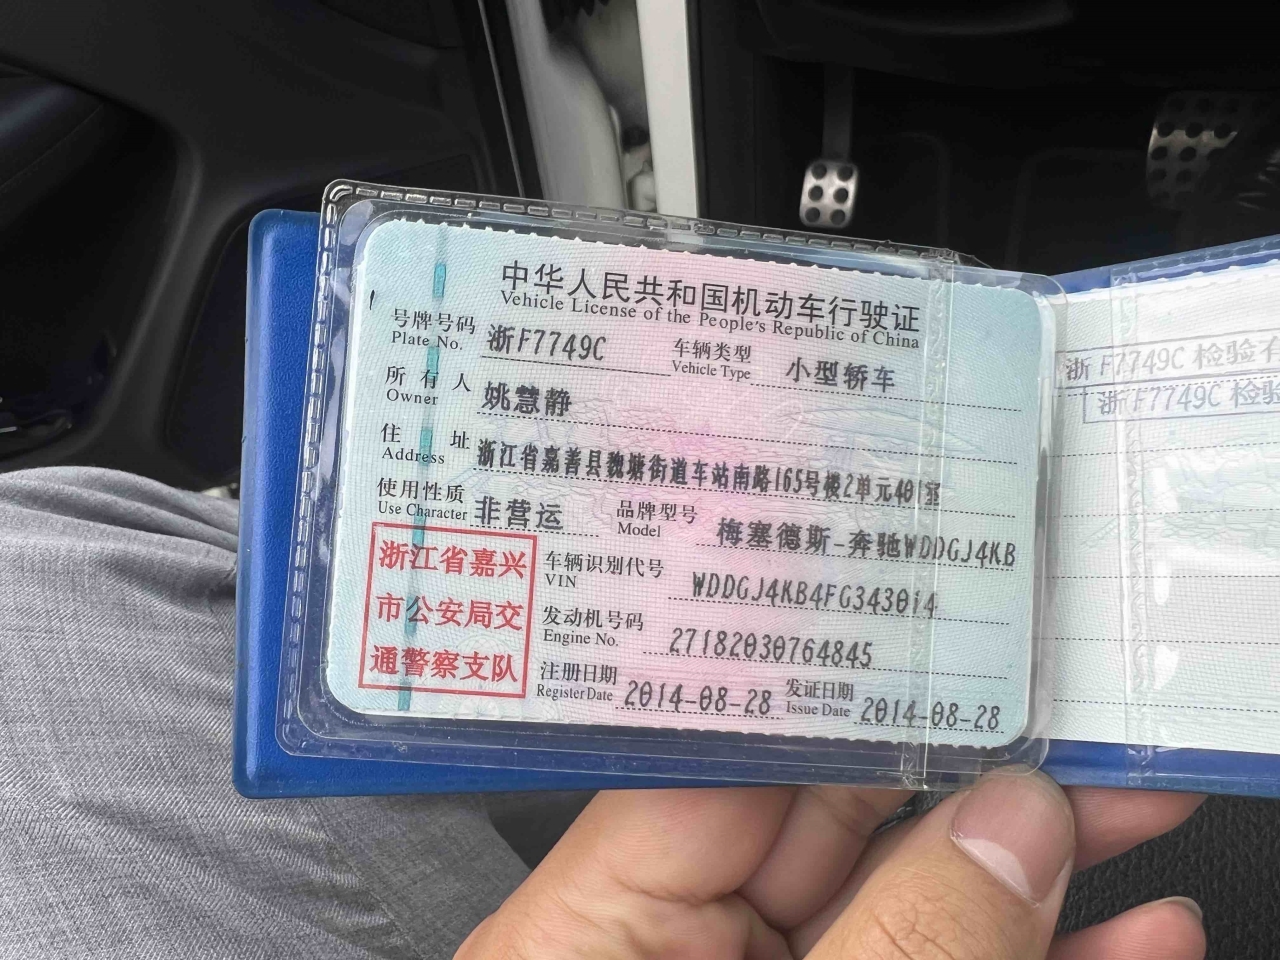 中华人民共和国机动车行驶证
Vehicle License of the People's Republic of China
号牌号码 浙F7749C 车辆类型 小型轿车
Plate No. Vehicle Type
所有人 姚慧静
Owner
住址 浙江省嘉善县魏塘街道车站南路165号楼2单元401室
Address
使用性质 非营运 品牌型号 梅塞德斯-奔驰WDDGJ4KB
Use Character Model
浙江省嘉兴
市公安局交
通警察支队
车辆识别代号 WDDGJ4KB4FG343014
VIN
发动机号码 27182030764845
Engine No.
注册日期 2014-08-28 发证日期 2014-08-28
Register Date Issue Date
浙F7749C 检验
浙F7749C 检验